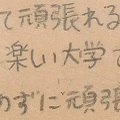 て頑張れる
楽しい大学で
めずに頑張